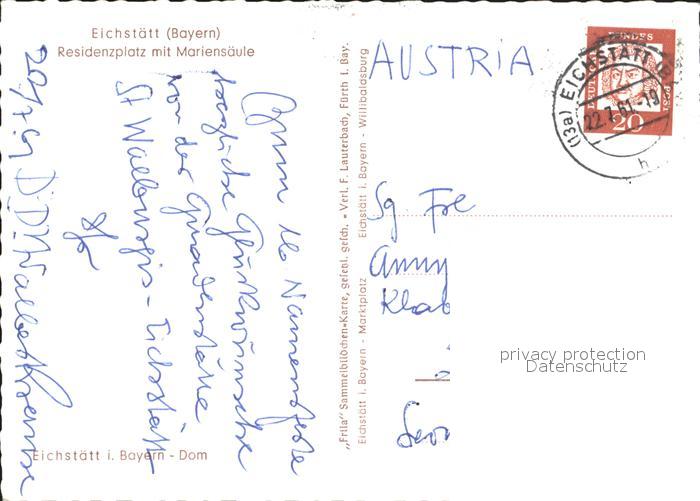 Eichstätt (Bayern)
Residenzplatz mit Mariensäule
Zum lb Namensfeste
herzliche Glückwünsche
von der Gnadenstätte
St Walburgis - Eichstätt
20/7.61
Eichstätt i. Bayern - Dom
„Frila" Sammelbildchen-Karte, gesenl. gesch. • Verl. F. Lauterbach, Fürth i. Bay.
Eichstätt i. Bayern - Marktplatz
Eichstätt i. Bayern - Willibaldsburg
AUSTRIA
DEUTSCHE BUNDESPOST
20
(13a) EICHSTÄTT (B
22.7.61.-19
h
Sg Frl
Anny
Klab
privacy protection
Datenschutz